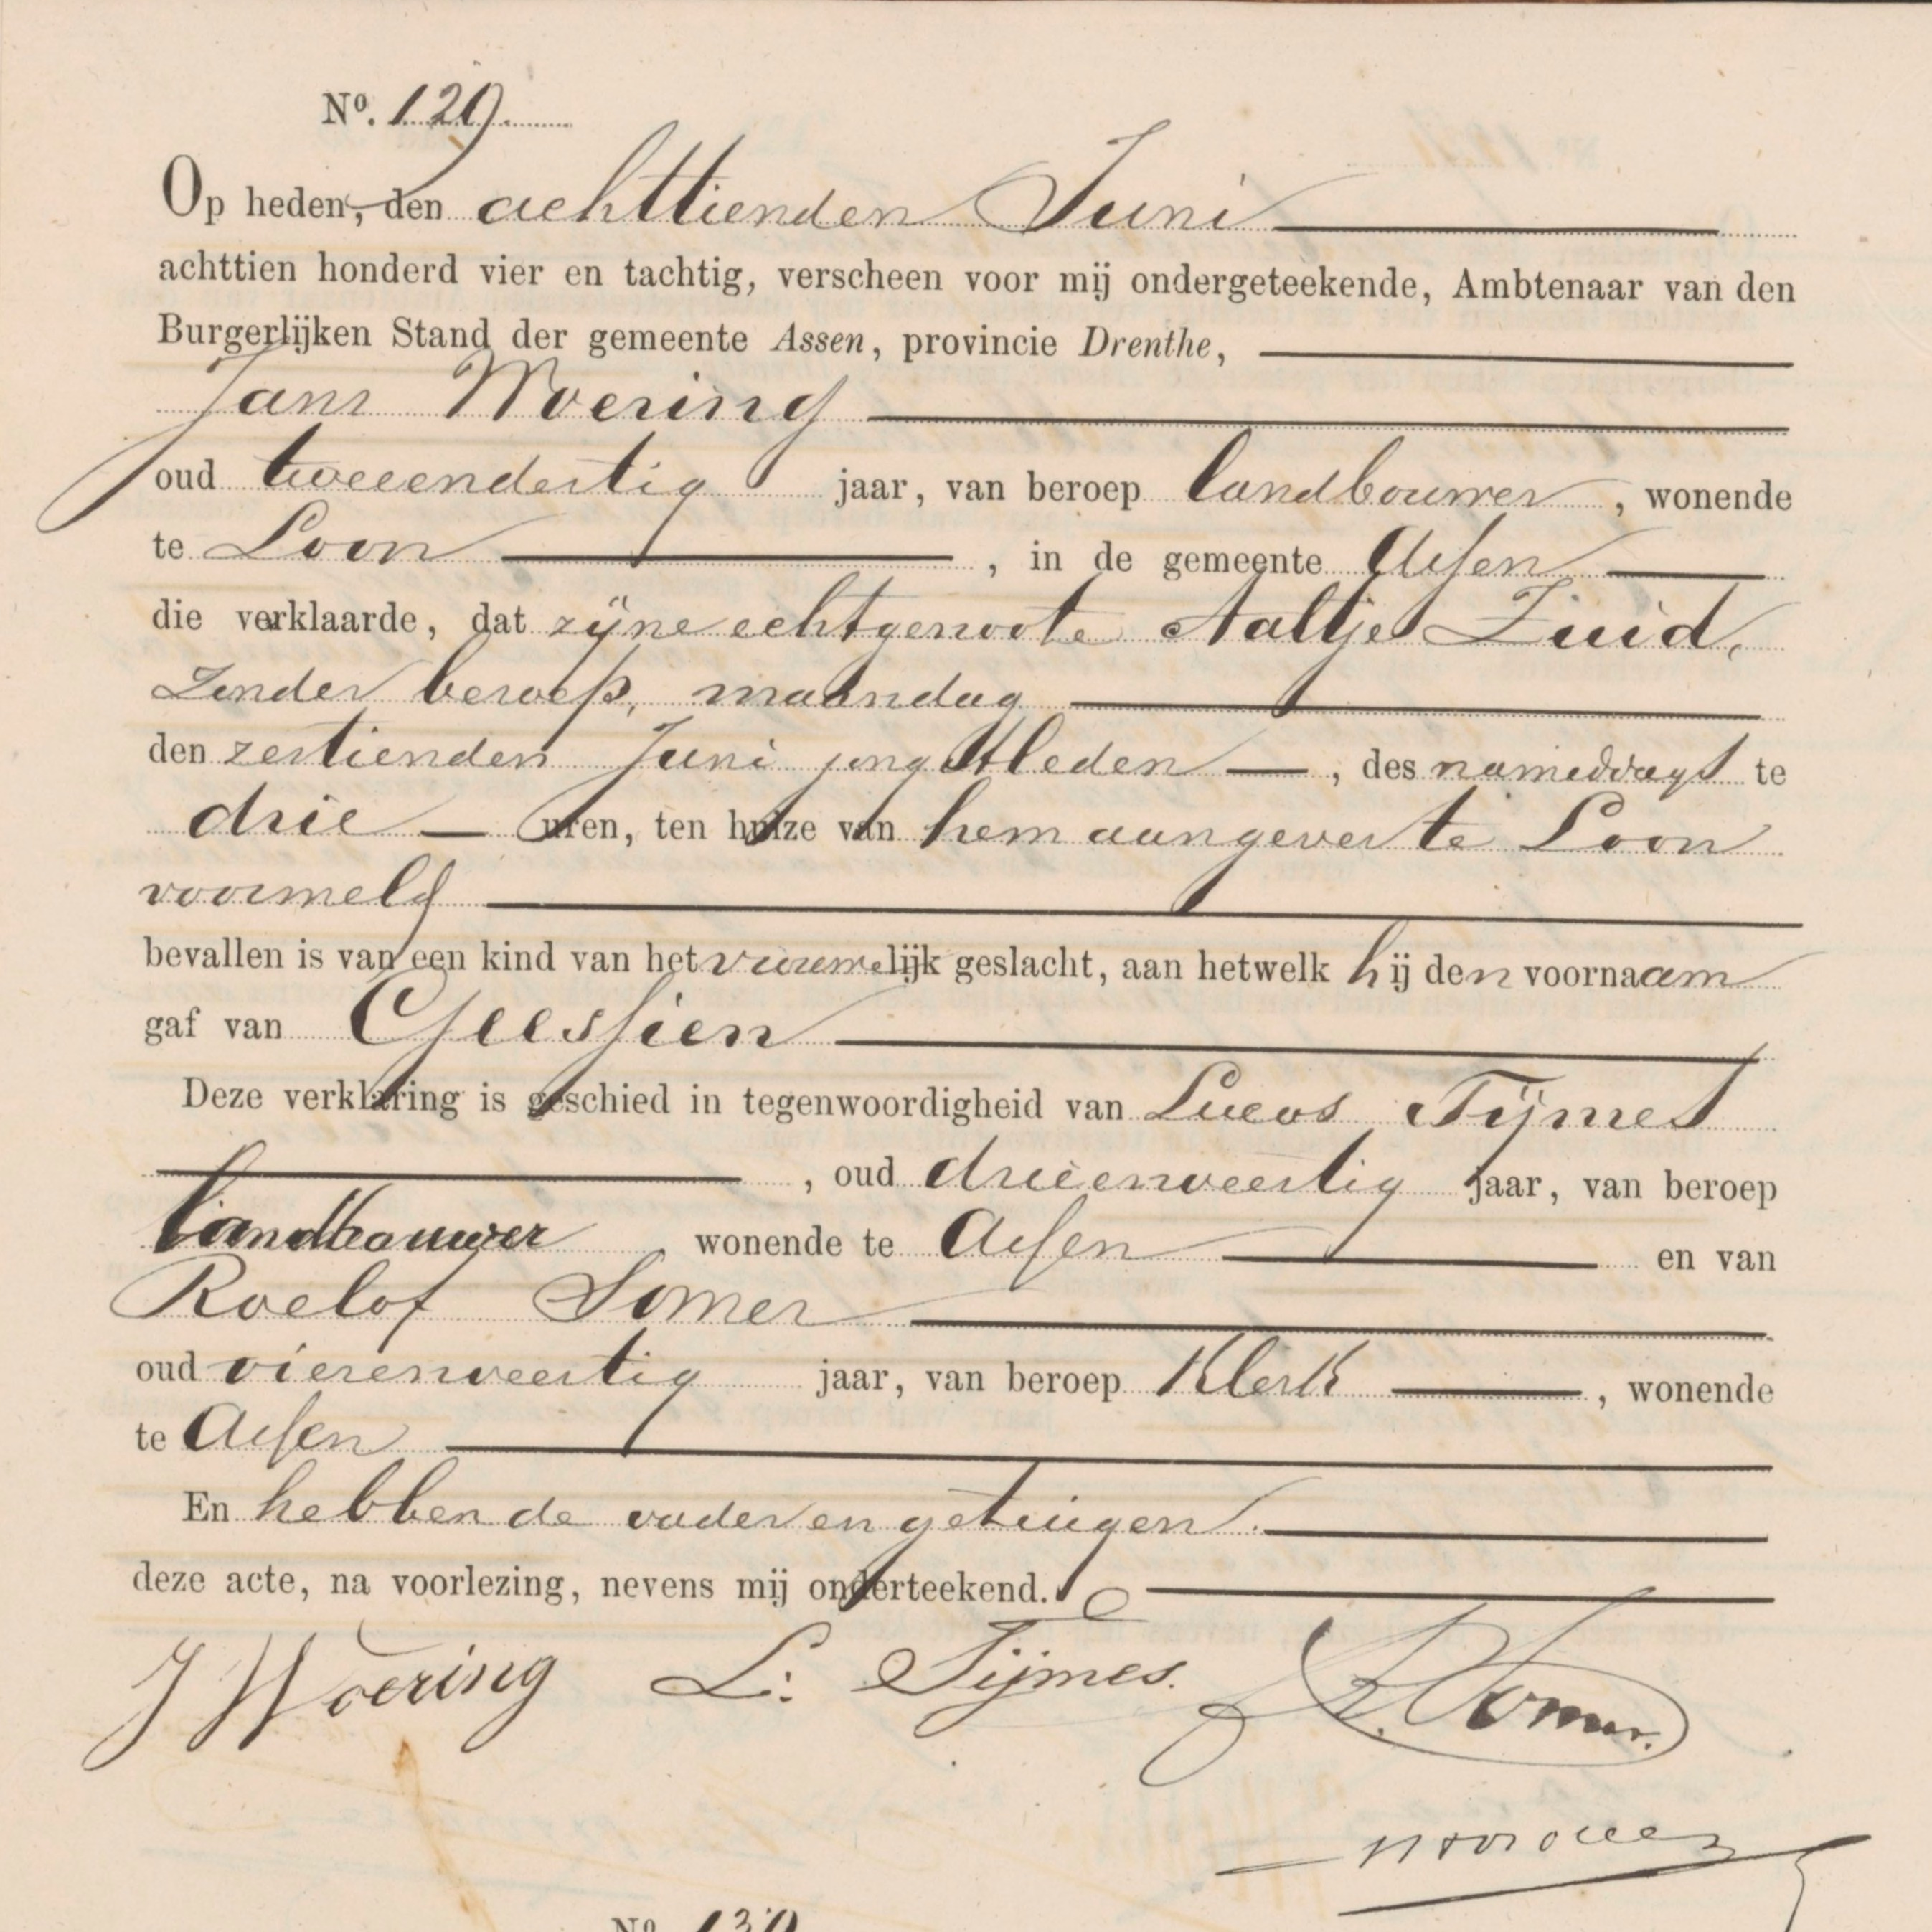 No. 129.
Op heden, den achttienden Juni
achttien honderd vier en tachtig, verscheen voor mij ondergeteekende, Ambtenaar van den
Burgerlijken Stand der gemeente Assen, provincie Drenthe,
Jans Woering
oud tweeendertig jaar, van beroep landbouwer, wonende
te Loon, in de gemeente Assen
die verklaarde, dat zijne echtgenoote Aaltje Zuid,
zonder beroep, maandag
den zestienden Juni jongstleden, des namiddags te
drie uren, ten huize van hem aangever te Loon
voormeld
bevallen is van een kind van het vrouwelijk geslacht, aan hetwelk hij den voornaam
gaf van Geessien
Deze verklaring is geschied in tegenwoordigheid van Lucas Tijmes
, oud drieenveertig jaar, van beroep
landbouwer wonende te Assen en van
Roelof Somer
oud vierenveertig jaar, van beroep Klerk, wonende
te Assen
En hebben de vader en getuigen
deze acte, na voorlezing, nevens mij onderteekend.
J Woering L: Tijmes. R. Somer.
No. 130